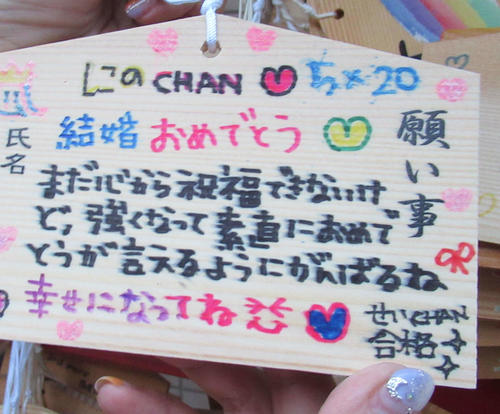 にのCHAN ♥ 5×20
結婚おめでとう
願い事
氏名
まだ心から祝福できないけ
ど、強くなって素直におめで
とうが言えるようにがんばるね
幸せになってね
せいCHAN
合格